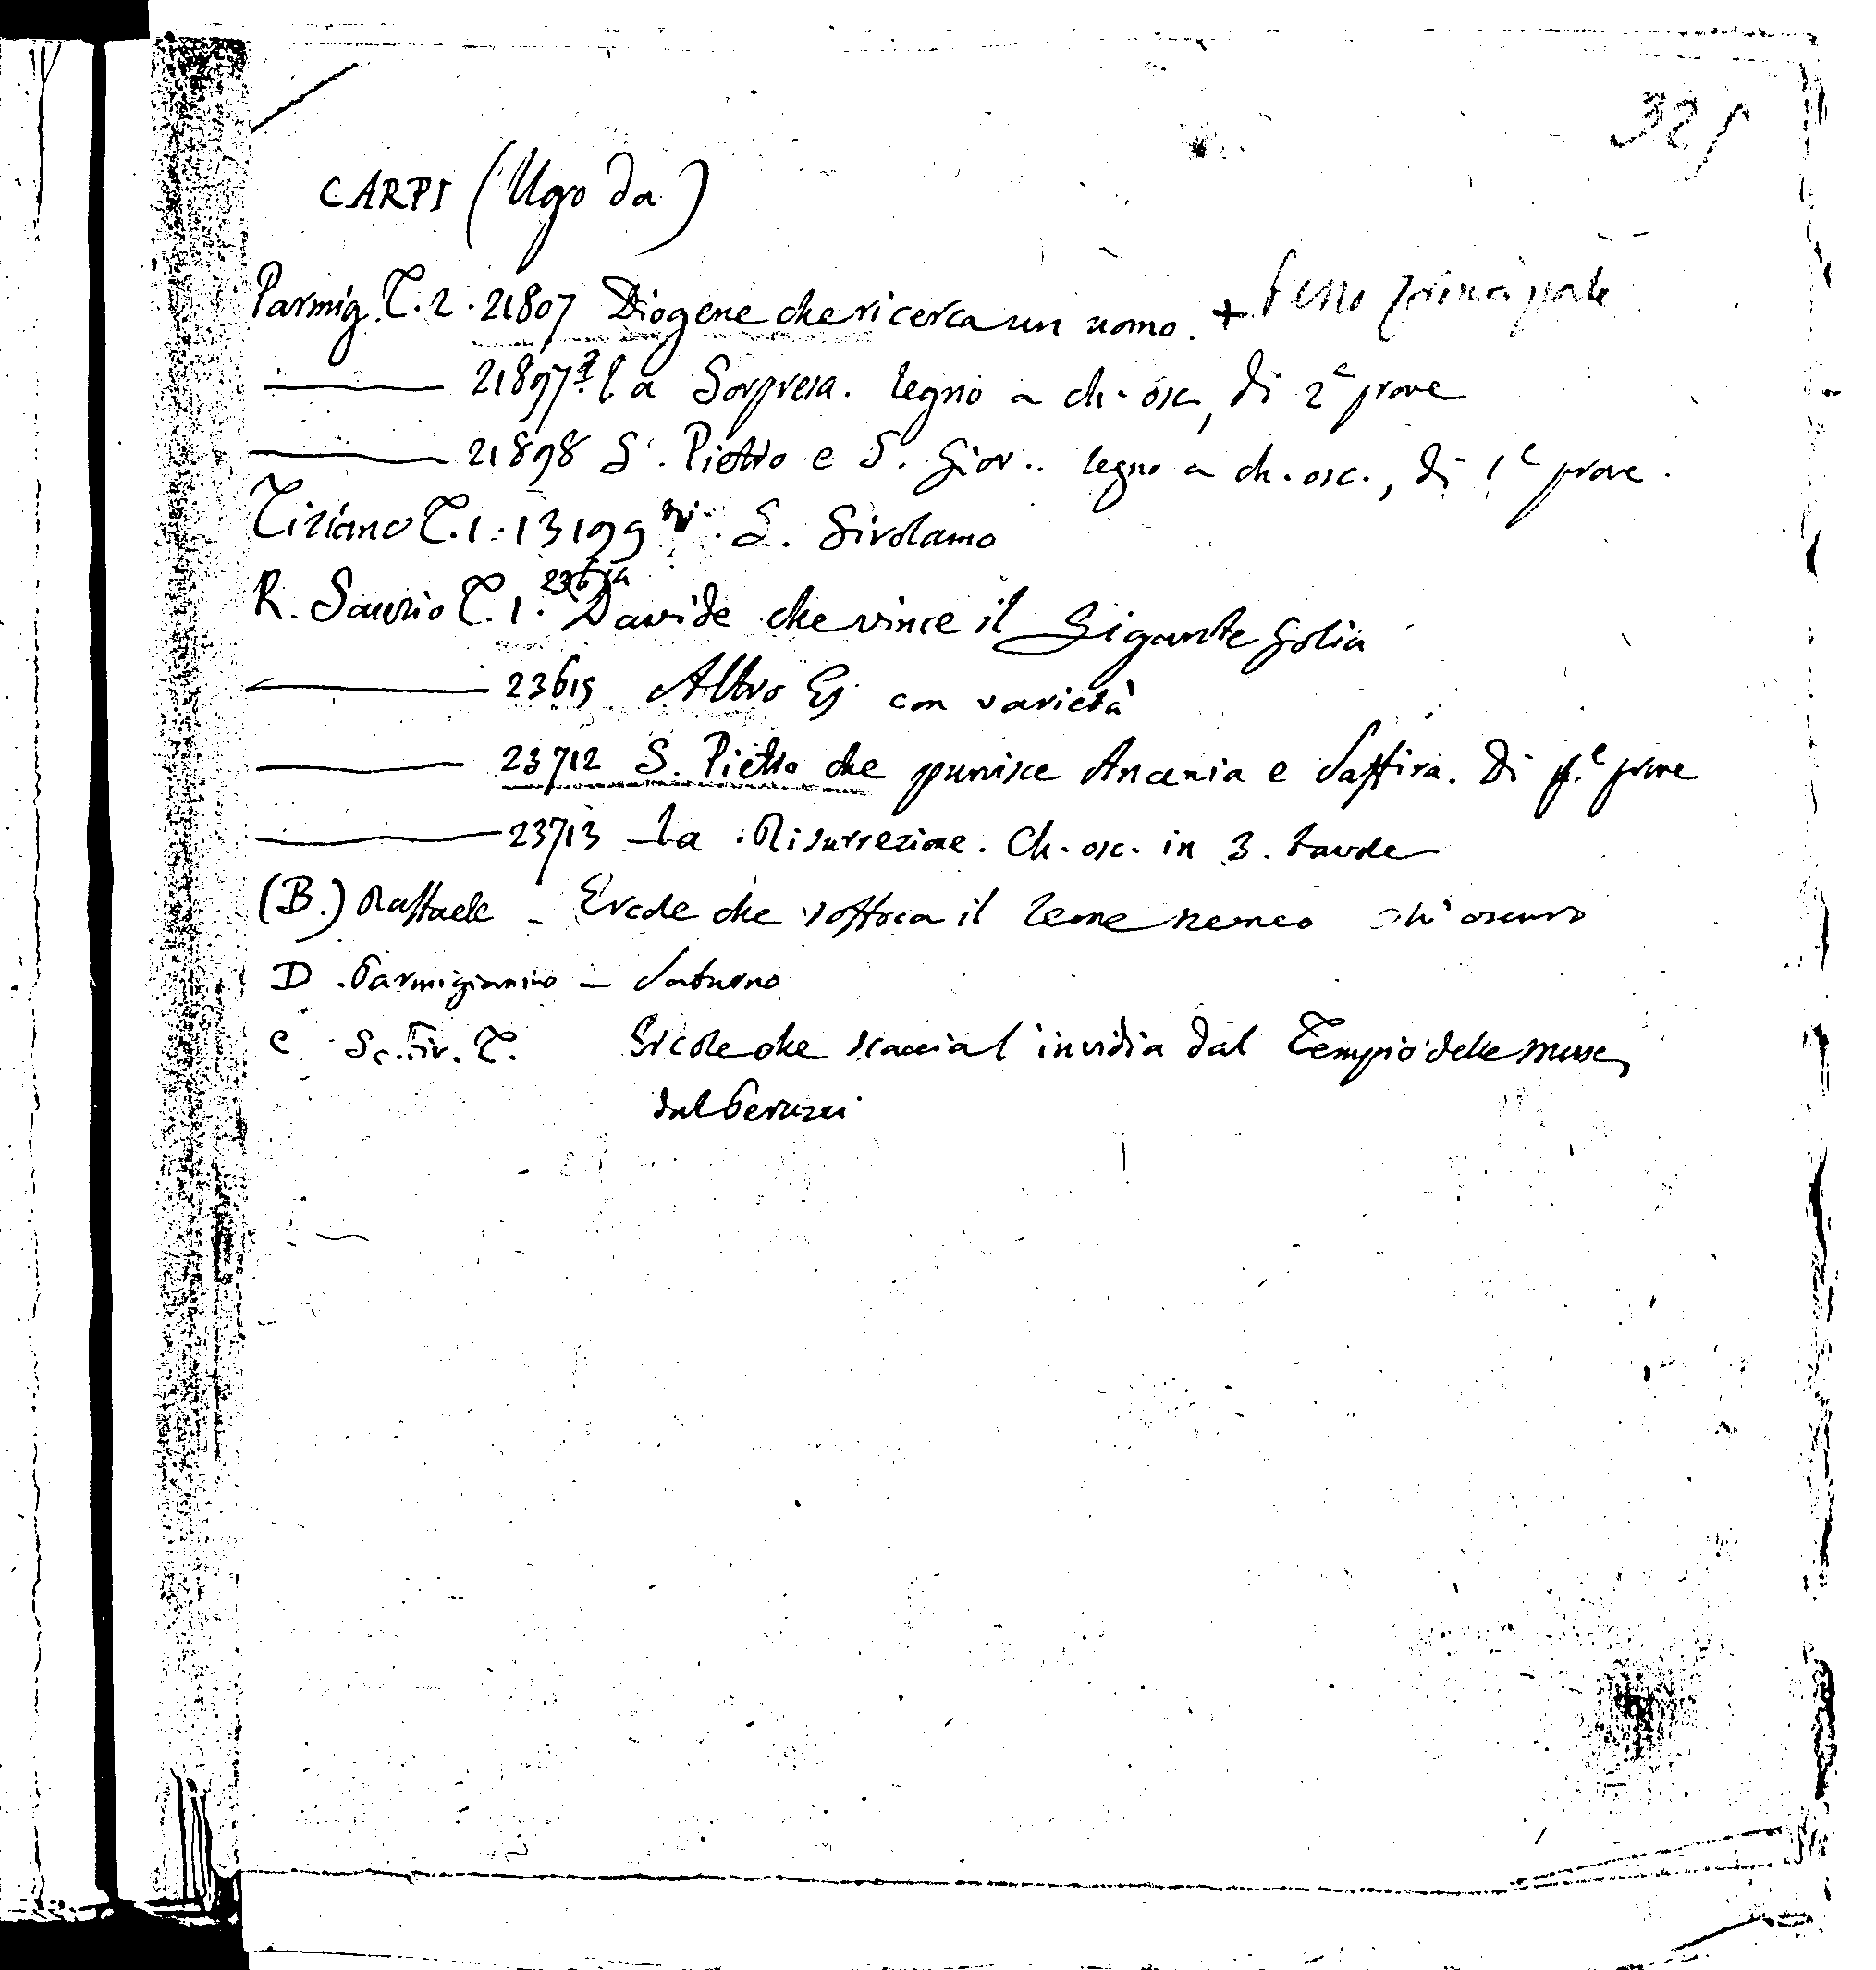 32
CARPI (Ugo da)
Parmig. T. 2. 21807 Diogene che ricerca un uomo. + Pezzo principale
21897 La Sorpresa. legno a ch. osc, di 2e prove
21898 S. Pietro e S. Giov.. legno a ch. osc., di 1e prove.
Tiziano T. 1. 13199 S. Girolamo
R. Sanzio T. 1. 23614 Davide che vince il Gigante Golia
23615 Altro Es con varietà
23712 S. Pietro che punisce Anania e Saffira. Di p.e prove
23713 La Risurrezione. Ch. osc. in 3. tavole
(B.) Raffaele - Ercole che soffoca il leone nemeo chi oscuro
D Parmigianino - Saturno
C Sc. Fir. T. Ercole che scaccia l'invidia dal Tempio delle Muse,
dal Peruzzi